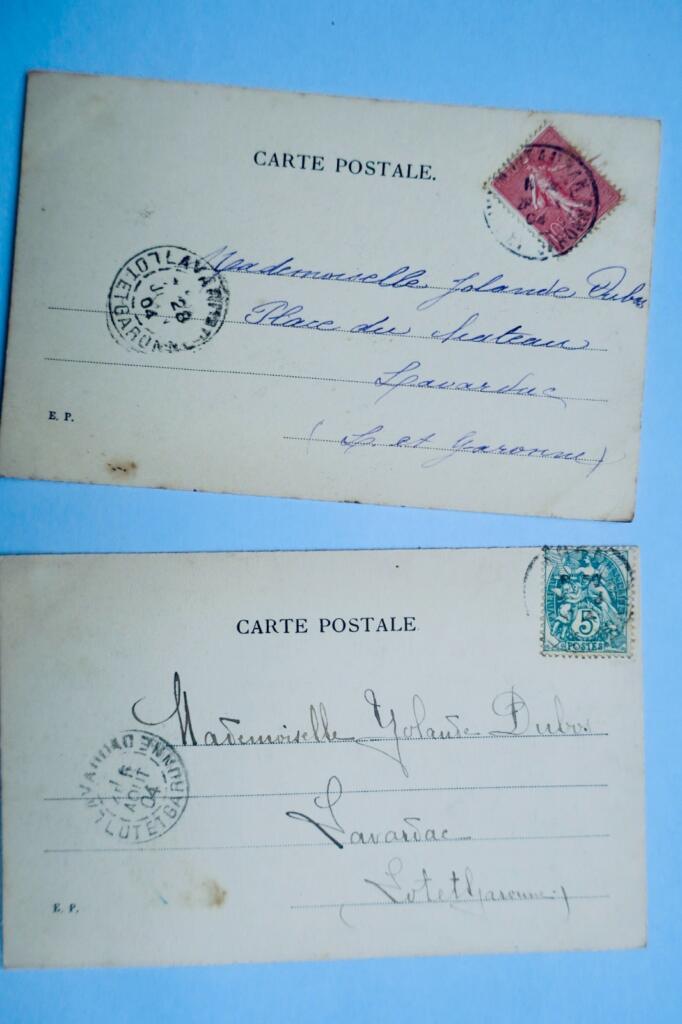 CARTE POSTALE.
Mademoiselle Yolande Dubos
Place du Chateau
Lavardac
(L. et Garonne)
LAVARDAC
28
04
LOT ET GARONNE
E. P.
CARTE POSTALE
5
POSTES
Mademoiselle Yolande Dubos
Lavardac
(Lot et Garonne)
LAVARDAC
6
AOUT
04
LOT ET GARONNE
E. P.